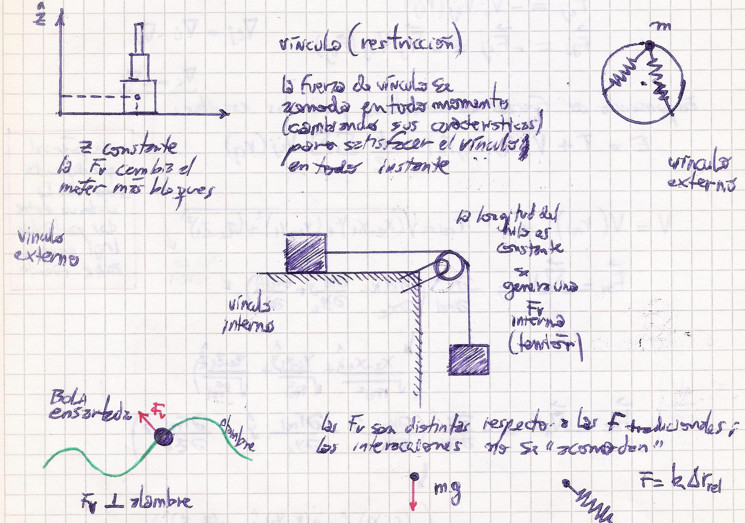 ẑ
z constante
la Fv cambia al
meter más bloques
vínculo (restricción)
la fuerza de vínculo se
acomoda en todo momento
(cambiando sus características)
para satisfacer el vínculo
en todo instante
m
vínculo
externo
vínculo
externo
vínculo
interno
la longitud del
hilo es
constante
se
genera una
Fv
interna
(tensión)
BOLA
ensartada
Fv
alambre
Fv ⊥ alambre
las Fv son distintas respecto a las F tradicionales;
las interacciones no se "acomodan"
mg
F = k Δr rel